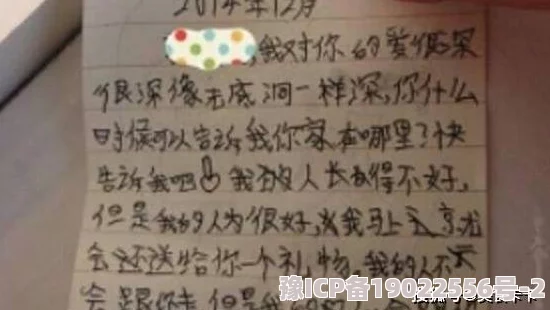 2014年12月
,我对你的爱很深
很深像无底洞一样深,你什么
时候可以告诉我你家在哪里了快
告诉我吧 我的人长得不好,
但是我的人为很好,我马上
会还送给你一个礼物,我的人不
会跟你走,但是我
豫ICP备19022556号-2